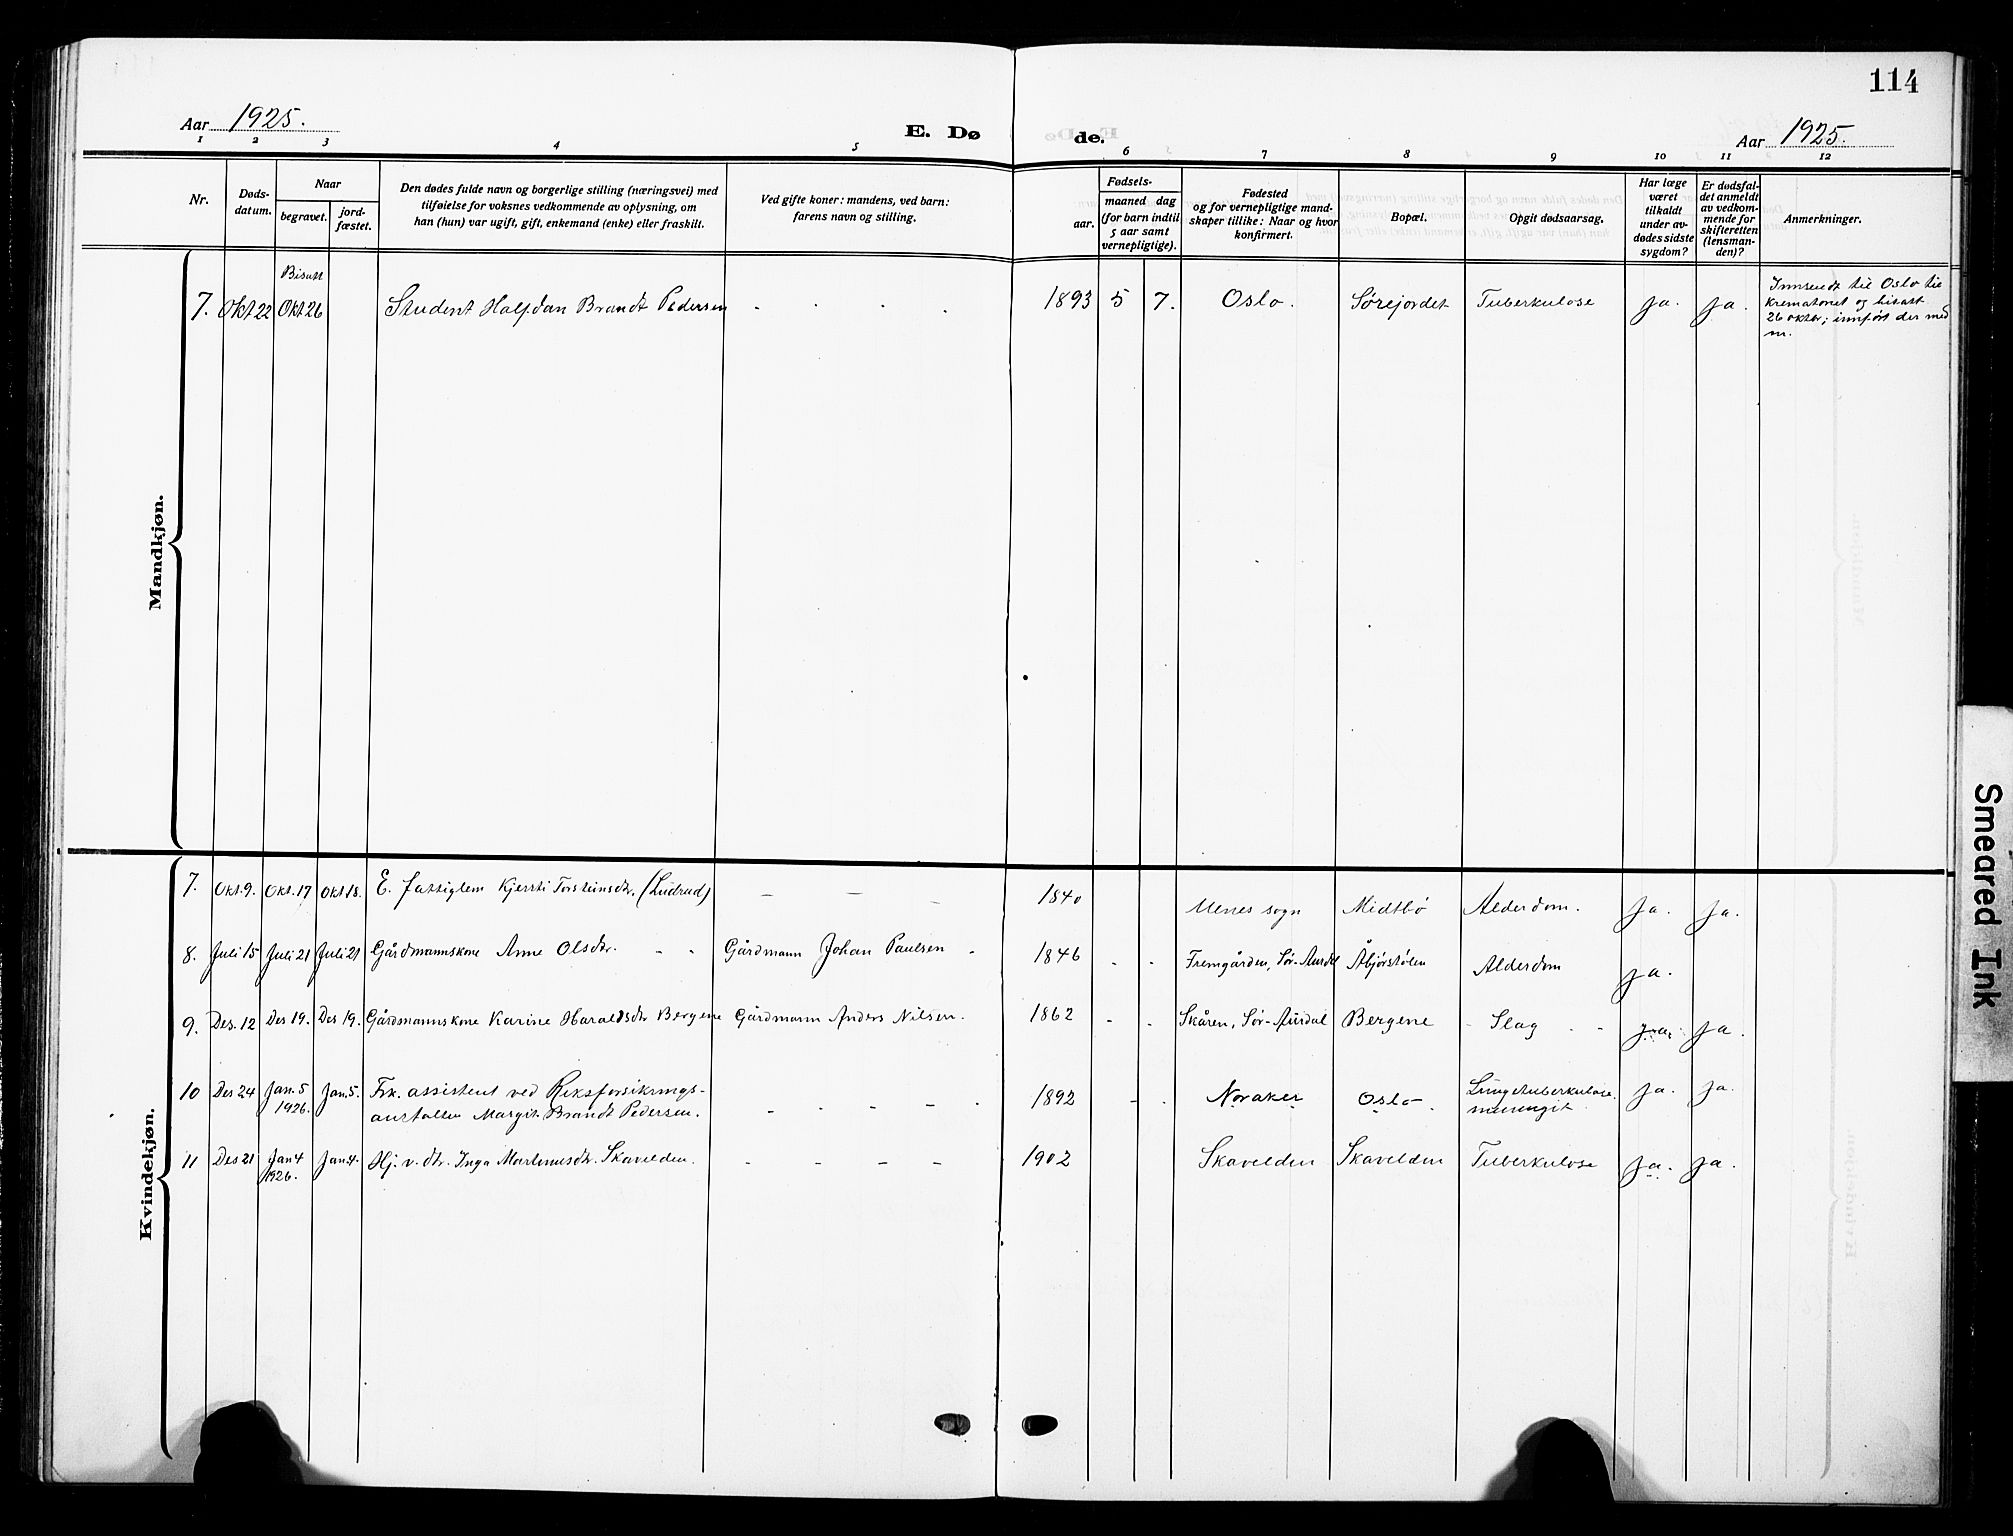 114
Aar 1925.
E. Dø
de.
Aar 1925.
1 2 3 4 5 6 7 8 9 10 11 12
Nr.
Døds-
datum.
Naar
begravet.
jord-
fæstet.
Den dødes fulde navn og borgerlige stilling (næringsvei) med
tilføielse for voksnes vedkommende av oplysning, om
han (hun) var ugift, gift, enkemand (enke) eller fraskilt.
Ved gifte koner: mandens, ved barn:
farens navn og stilling.
Fødsels-
aar.
maaned dag
(for barn indtil
5 aar samt
vernepligtige).
Fødested
og for vernepligtige mand-
skaper tillike: Naar og hvor
konfirmert.
Bopæl.
Opgit dødsaarsag.
Har læge
været
tilkaldt
under av-
dødes sidste
sygdom?
Er dødsfal-
det anmeldt
av vedkom-
mende for
skifteretten
(lensman-
den)?
Anmerkninger.
Mandkjøn.
Bisatt
7. Okt 22 Okt 26 Student Halfdan Brandt Pedersen - - - - 1893 5 7. Oslo. Sørejordet Tuberkulose ja. ja.
Innsendt til Oslo til
krematoriet og bisatt
26 oktbr; innført der med
nr.
Kvindekjøn.
7. Okt. 9. Okt. 17 Okt 18. E. fattiglem Kjersti Torsteinsdtr. (Ludrud) - - - 1840 Ulnes sogn Midtbø Alderdom. Ja. Ja.
8. Juli 15 Juli 21 Juli 21 Gårdmannskone Anne Olsdtr. - - Gårdmann Johan Paulsen - 1846 - - Fremgården, Sør-Aurdal Åbjørstølen Alderdom ja.
9. Des. 12 Des 19. Des 19. Gårdmannskone Karine Haraldsdtr Bergene Gårdmann Anders Nilsen. 1862 - - Skåren, Sør-Aurdal Bergene - Slag - - ja. ja.
10 Des 24 Jan. 5 1926. Jan. 5. Frk. assistent ved Riksforsikrings-
anstalten Margit Brandt Pedersen. - - - - 1892 - - Noraker Oslo. Lungetuberkulose.
meningit. ja. ja.
11 Des 21 Jan 4 1926. Jan 4. Hj. v. dtr. Inga Martinusdtr. Skavelden. - - - - 1902 Skavelden Skavelden Tuberkulose ja. ja.
Smeared Ink